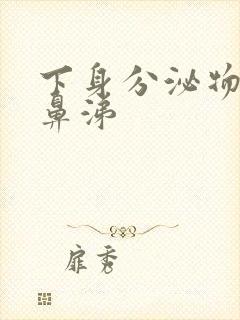 下身分泌物
鼻涕
扉秀